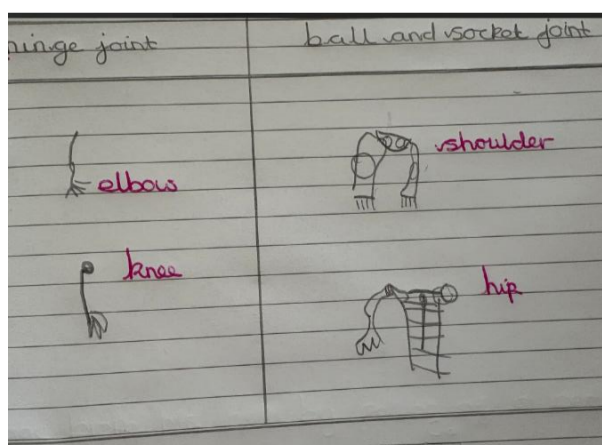 hinge joint
ball and socket joint
elbow
shoulder
knee
hip